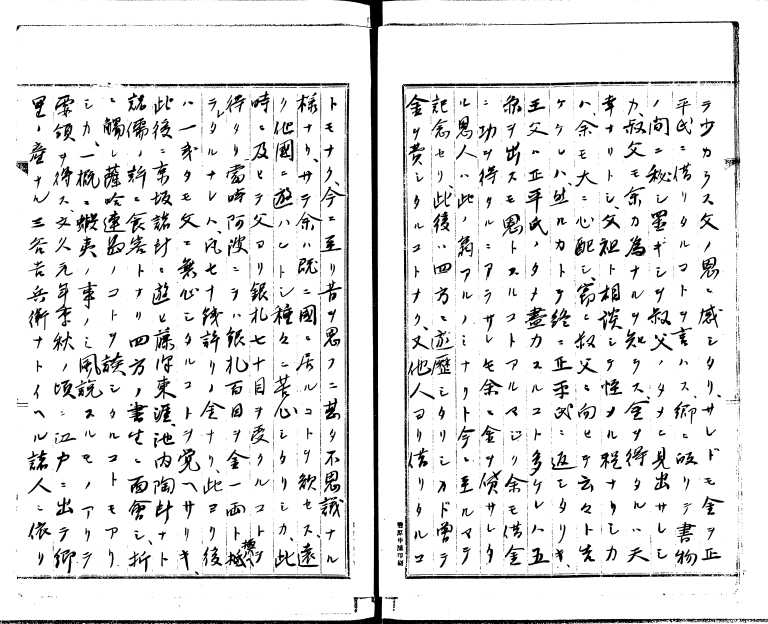 ラ少カラス父ノ恩ニ感シタリ、サレドモ金ヲ正
平氏ニ借リタルコトヲ言ハス郷ニ皈リテ書物
ノ間ニ秘シ置ギシヲ叔父ノタメニ見出サレシ
カ、叔父モ余カ為ナルヲ知ラス、金ヲ得タルハ天
幸ナリトシ、父祖ト相談シテ怪メル程ナリシカ
ハ、余モ大ニ心配シ、窃ニ叔父ニ向ヒテ云々ト告
ケケレハ、然ルカトテ終ニ正平氏ニ返シタリキ、
王父ハ正平氏ノタメ盡力スルコト多ケレハ五
両ヲ出スモ恩トスルコトアルマジク余モ借金
ニ功ヲ得タルニアラサレモ余ニ金ヲ貸サレタ
ル恩人ハ此ノ翁アルノミナリト今ニ至ルマテ
記念セリ、此後ハ四方ニ遊歴シタリシカド曽テ
金ヲ費シタルコトナク、又他人ヨリ借リタルコ
トモナク、今ニ至リ昔ヲ思フニ甚タ不思議ナル
様ナリ、サテ余ハ既ニ國ニ居ルコトヲ欲セス、遠
ク他國ニ遊ハントシ種々ニ苦心シタリシカ、此
時ニ及ヒテ父ヨリ銀札七十目ヲ受クルコトヲ
得タリ、當時阿波ニテハ銀札百目ヲ金一両ト換ヘ
ラレタルナレハ、凡七十銭許リノ金ナリ、此ヨリ後
ハ一錢タモ父ニ無心シタルコトヲ覚ヘサリキ、
此後ニ京坂諸州ニ遊ヒ藤澤東涯、池内陶所ナト
諸儒ノ許ニ食客トナリ四方ノ書生ニ面會シ、折
ニ觸レ薩哈連島ノコトヲ談シタルコトモアリ
シカ、一概ニ蝦夷ノ事ノミ風説スルモノアリテ
要領ヲ得ス、文久元年季秋ノ頃ニ江戸ニ出テ郷
里ノ産ナル三谷吉兵衛ナトイヘル諸人ニ依リ